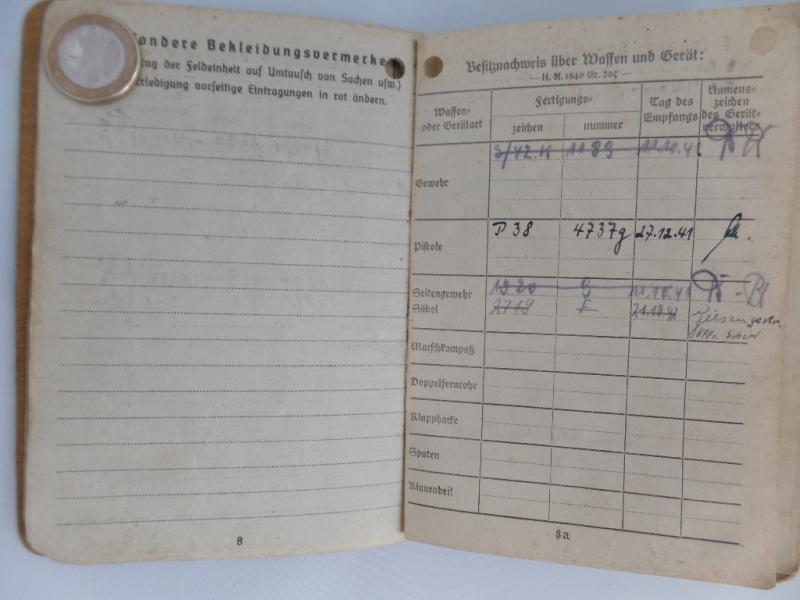 ondere Bekleidungsvermerke
ag der Feldeinheit auf Umtausch von Sachen usw.)
rledigung vorseitige Eintragungen in rot ändern.
8
Besitznachweis über Waffen und Gerät:
— H. M. 1940 Nr. 205 —
Waffen- oder Geräteart
Fertigungs-
zeichen
nummer
Tag des Empfangs
Namens- zeichen des Gerät- verwalters
S/42.K 1189 11.10.41
Gewehr
Pistole P 38 4737g 27.12.41
Seitengewehr 1920 G 11.10.41
Säbel 2719 F
Marschkompaß
Doppelfernrohr
Klapphacke
Spaten
Klauenbeil
8a